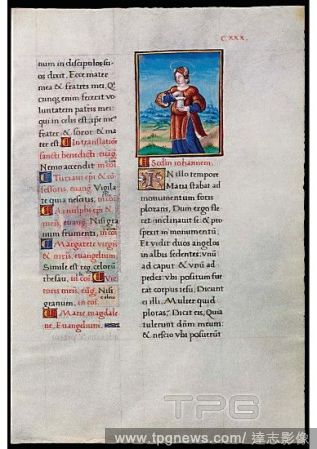 C XXX.
num in discipulos su
os dixit. Ecce mater
mea & fratres mei. Q
cunq; enim fecerit vo
luntatem patris mei
qui in celis est: ipse me
frater & soror & ma
ter est. In translatione
sancti benedicti. euag.
Nemo accendit. in coi.
confessoris. euang. Vigila
te quia nescitis. in coi.
Arnulphi epi &
mris. euang. Nisi gra
num frumenti. in coi.
Margarete virgis
& mris. euangelium.
Simile est reg celorū
thesau. in coi.
toris mris. eug. Nisi
granum. in coi.
Marie magdale
ne. Euangelium.
Secdm iohannem.
IN illo tempore
Maria stabat ad
monumentum foris
plorans. Dum ergo fle
ret: inclinauit se & pro
spexit in monumentū:
Et vidit duos angelos
in albis sedentes: vnū
ad caput & vnū ad
pedes: vbi positum fue
rat corpus iesu. Dicunt
ei illi. Mulier quid
ploras? Dicit eis. Quia
tulerunt dūm meum:
& nescio vbi posuerūt
TPG
www.tpgnews.com/達志影像